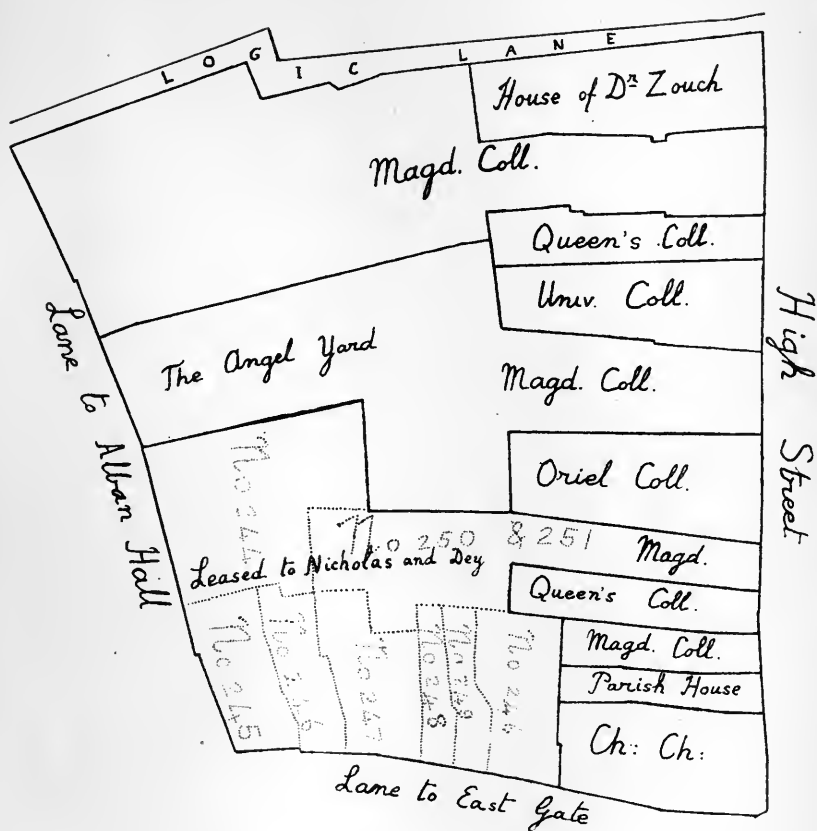 LOGIC LANE
House of Dr. Zouch
Magd. Coll.
Queen's Coll.
Univ. Coll.
The Angel Yard
Magd. Coll.
Lane to Alban Hall
High Street
Oriel Coll.
No 244
No 250 & 251
Magd.
Leased to Nicholas and Dey
Queen's Coll.
Magd. Coll.
Parish House
Ch: Ch:
No 245
No 246
No 247
No 248
No 249
No 246
Lane to East Gate